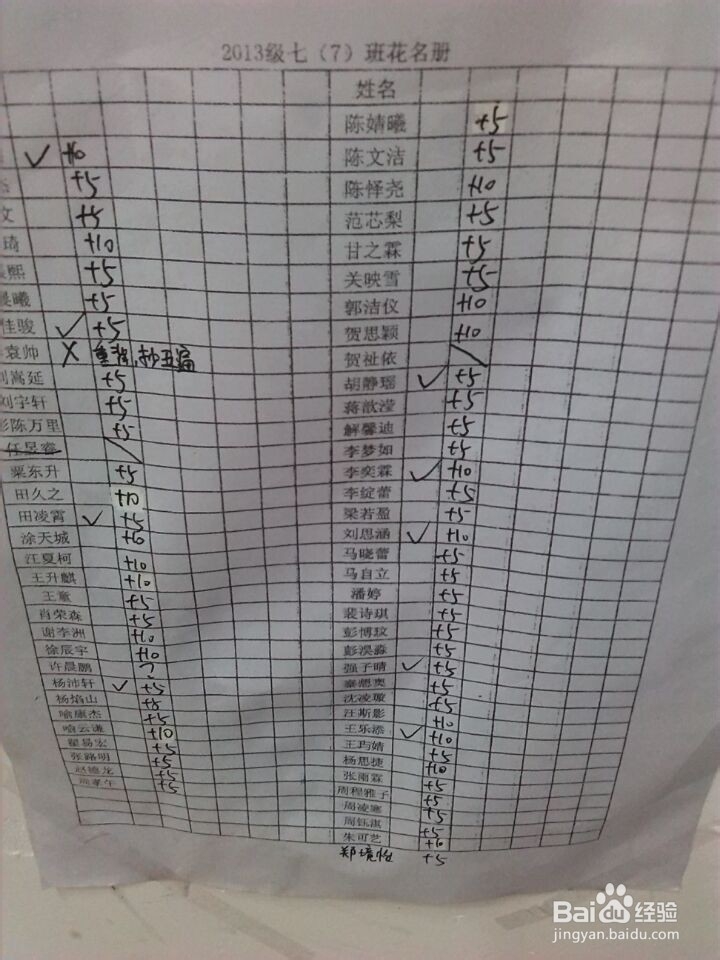 2013级七（7）班花名册
姓名
✓ +10
+5
文 +5
琦 +10
熙 +5
晨曦 +5
佳骏 ✓ +5
袁帅 × 重背，抄五遍
刘嵩延 +5
刘宇轩 +5
彭陈万里 +5
任昱睿
粟东升 +5
田久之 +10
田凌霄 ✓ +5
涂天城 +6
汪夏柯 +10
王升麒 +10
王童 +5
肖荣森 +5
谢李洲 +10
徐辰宇 +10
许晨鹏 ?
杨沛轩 ✓ +5
杨焰山 +5
喻康杰 +5
喻云谦 +10
翟易宏 +5
张路明 +5
赵德龙 +5
周孝午 +5
陈婧曦 +5
陈文洁 +5
陈怿尧 +10
范芯梨 +5
甘之霖 +5
关映雪 +5
郭洁仪 +10
贺思颖 +10
贺祉依
胡静瑶 ✓ +5
蒋歆滢 +5
解馨迪 +5
李梦如 +5
李奕霖 ✓ +10
李绽蕾 +5
梁若盈 +5
刘思涵 ✓ +10
马晓蕾 +5
马自立 +5
潘婷 +5
裴诗琪 +5
彭博玟 +5
彭淏淼 +5
强子晴 ✓ +5
秦想奥 +5
沈凌璇 +5
汪斯影 +10
王乐添 ✓ +10
王玙婧 +5
杨思捷 +10
张雨霖 +5
周程雅子 +5
周凌寒 +5
周钰淇 +5
朱可艺 +6
郑境怡 +5
Bai du 经验
jingyan.baidu.com